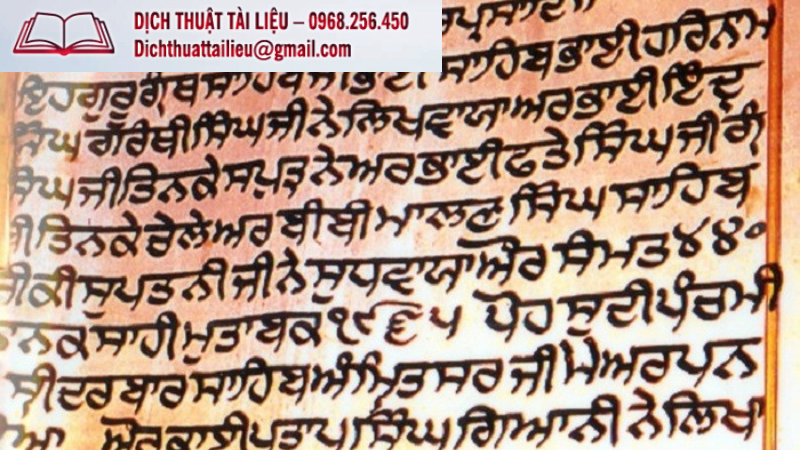 DỊCH THUẬT TÀI LIỆU – 0968.256.450
Dichthuattailieu@gmail.com
ਸਾਹਿਬ ਭਾਈ ਹਰਿਨਾਮ
ਸਿੰਘ ਗਰੰਥੀ ਸਿੰਘ ਜੀ ਨੇ ਲਿਖਵਾਯਾ ਅਰ ਭਾਈ ਇੰਦ੍ਰ
ਸਿੰਘ ਜੀ ਤਿਨਕੇ ਸਪੁਤ੍ਰ ਨੇ ਅਰ ਭਾਈ ਫਤੇ ਸਿੰਘ ਜੀ
ਜੀ ਤਿਨਕੇ ਚੇਲੇ ਅਰ ਬੀਬੀ ਮਾਲਣ ਸਿੰਘ ਸਾਹਿਬ
ਜੀ ਕੀ ਸੁਪਤਨੀ ਜੀ ਨੇ ਸੁਧਵਾਯਾ ਔਰ ਸੰਮਤ ੪੪੦
ਨਾਨਕ ਸਾਹੀ ਮੁਤਾਬਕ ੧੯੬੫ ਪੋਹ ਸੁਦੀ ਪੰਚਮੀ
ਸ੍ਰੀ ਦਰਬਾਰ ਸਾਹਿਬ ਅੰਮ੍ਰਿਤਸਰ ਜੀ ਮੇ ਅਰਪਨ
ਔਰ ਭਾਈ ਪ੍ਰਤਾਪ ਸਿੰਘ ਗਿਆਨੀ ਨੇ ਲਿਖਾ